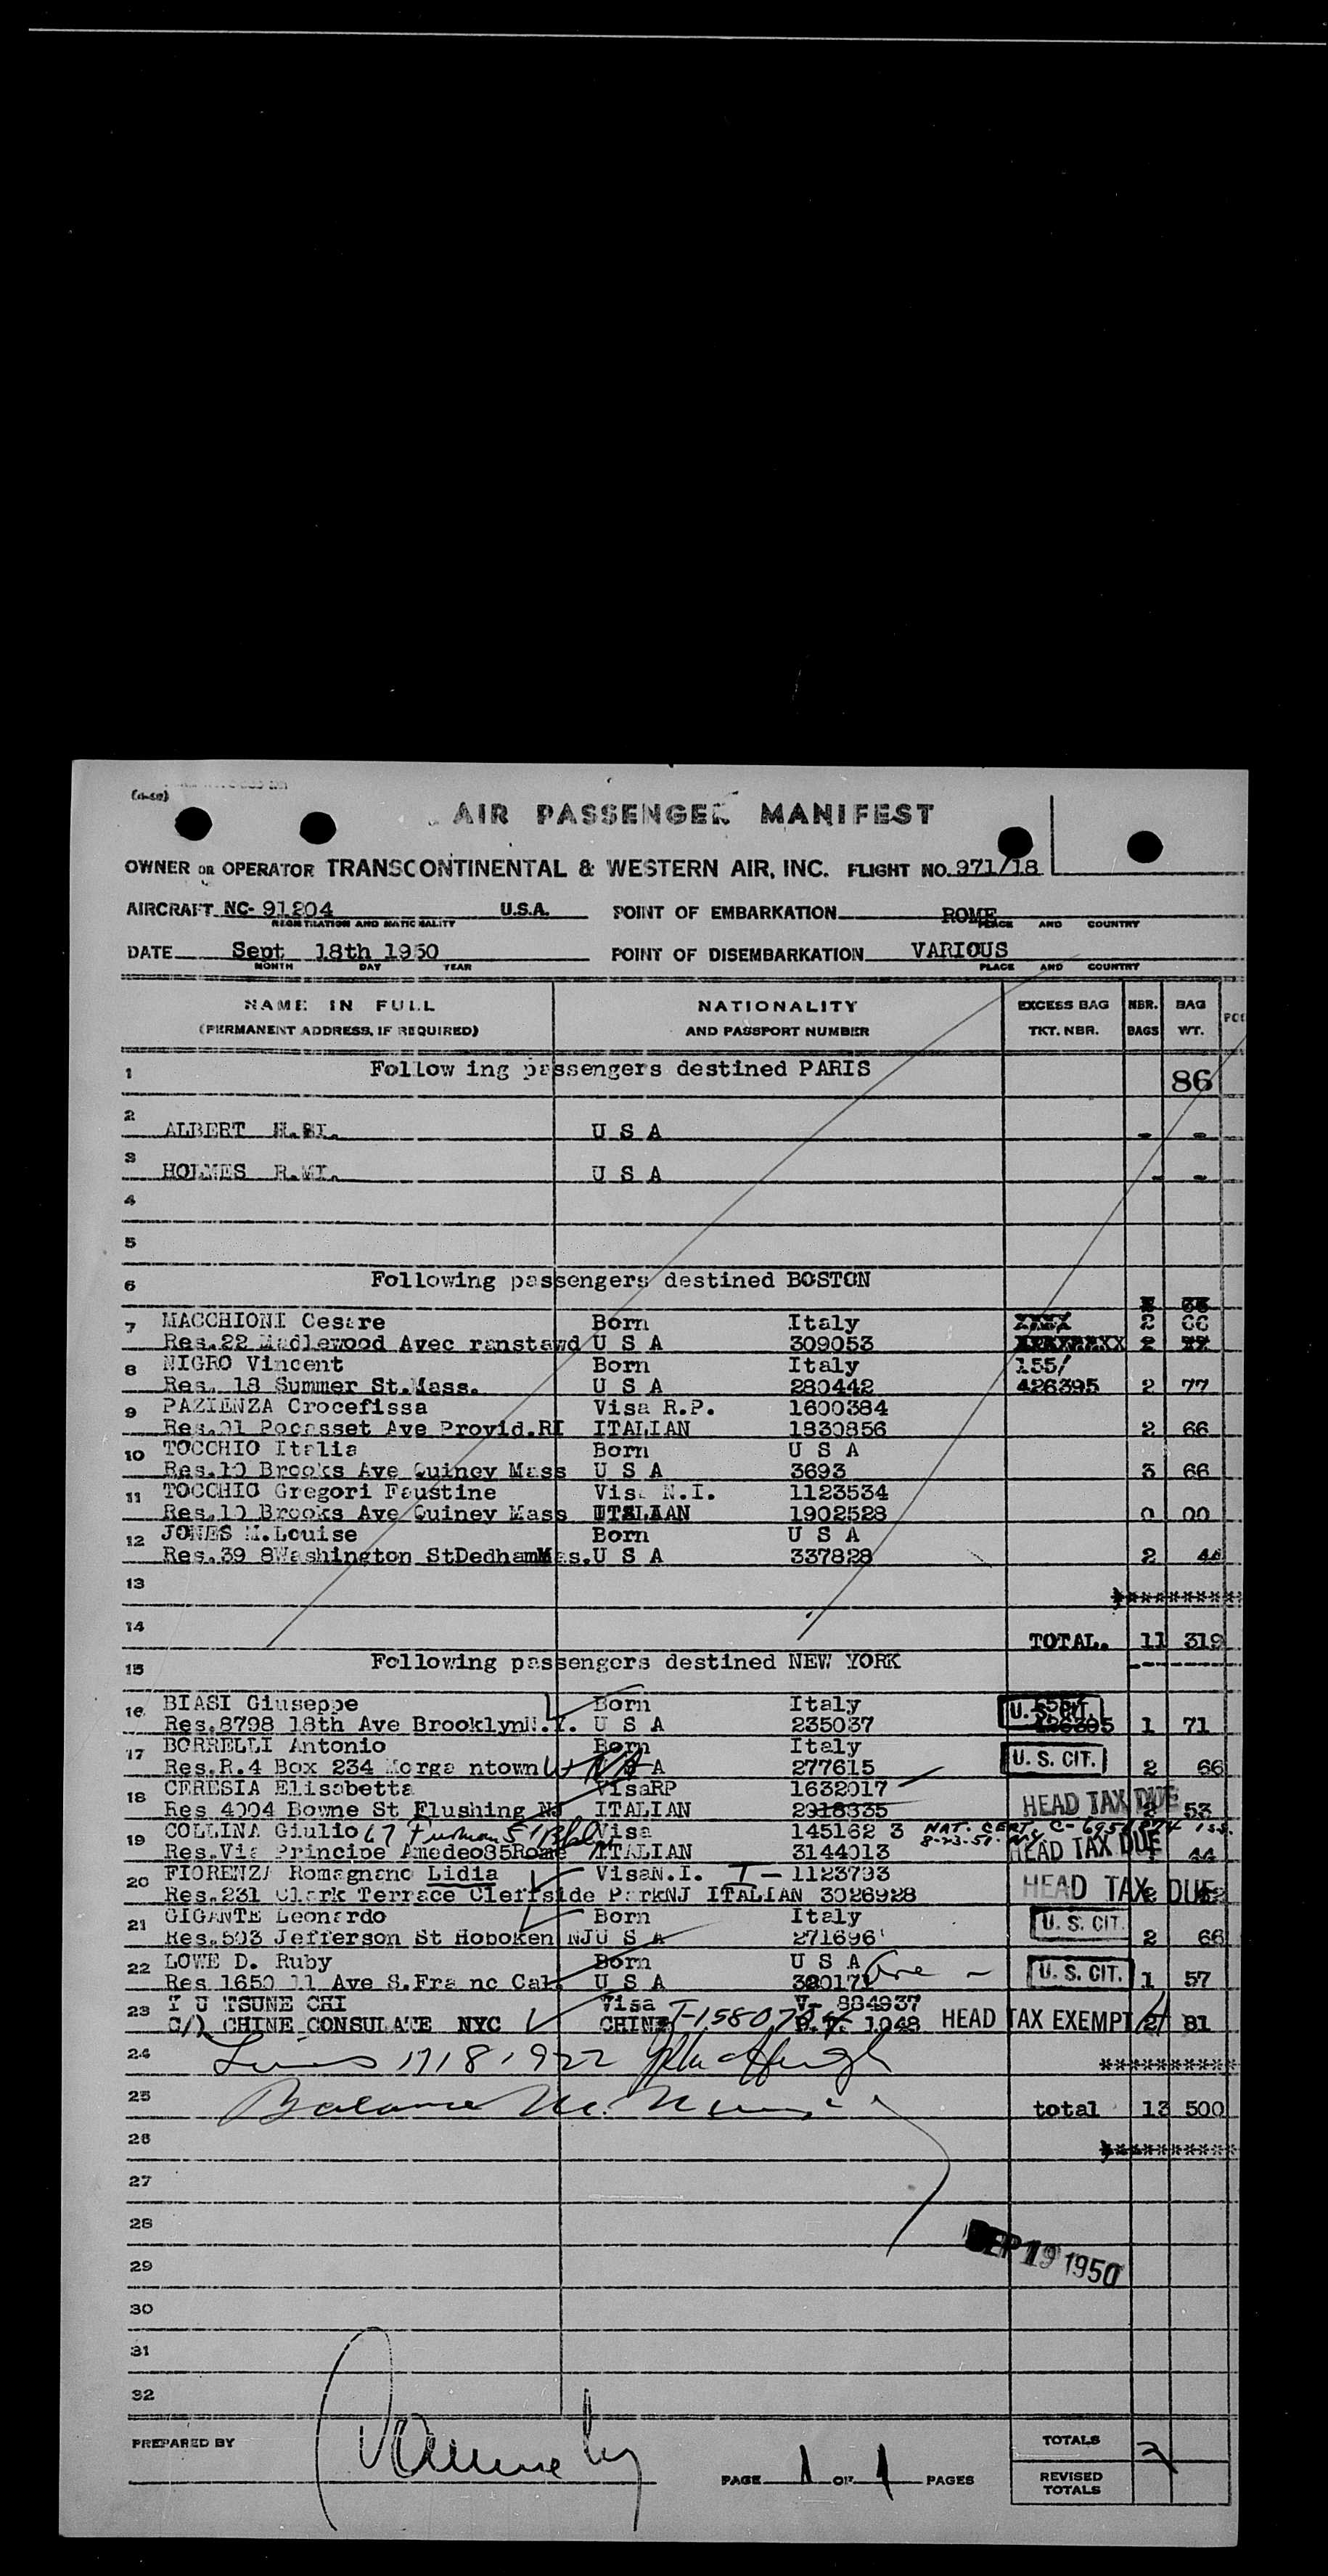 AIR PASSENGER MANIFEST
OWNER OR OPERATOR TRANSCONTINENTAL & WESTERN AIR, INC. FLIGHT NO. 971/18
AIRCRAFT NC- 91204 U.S.A. POINT OF EMBARKATION ROME
REGISTRATION AND NATIONALITY PLACE AND COUNTRY
DATE Sept 18th 1950 POINT OF DISEMBARKATION VARIOUS
MONTH DAY YEAR PLACE AND COUNTRY
NAME IN FULL NATIONALITY EXCESS BAG NBR. BAG
(PERMANENT ADDRESS, IF REQUIRED) AND PASSPORT NUMBER TKT. NBR. BAGS WT.
1 Follow ing passengers destined PARIS 86
2 ALBERT U S A - -
3 HOLMES R.MI. U S A - -
4
5
6 Following passengers destined BOSTON
7 MACCHIONI Cesare Born Italy XXXX 2 66
Res.22 U S A 309053
8 NIGRO Vincent Born Italy 155/
Res. 18 Summer St.Mass. U S A 280442 426395 2 77
9 PAZIENZA Crocefissa Visa R.P. 1600384
Res. Pocasset Ave Provid.RI ITALIAN 1830856 2 66
10 TOCCHIO Italia Born U S A
Res.10 Brooks Ave Quincy Mass U S A 3693 3 66
11 TOCCHIO Gregori Faustine Visa N.I. 1123534
Res.10 Brooks Ave Quincy Mass ITALIAN 1902528 0 00
12 JONES M.Louise Born U S A
Res.39 8Washington StDedhamMas. U S A 337828 2 44
13 *********
14 TOTAL. 11 319
15 Following passengers destined NEW YORK
16 BIASI Giuseppe Born Italy U. S. CIT.
Res.8798 18th Ave BrooklynN.Y. U S A 235037 1 71
17 BORRELLI Antonio Born Italy
Res.R.4 Box 234 Morga ntown A 277615 U. S. CIT. 2 66
18 CERESIA Elisabetta VisaRP 1632017
Res 4004 Bowne St Flushing ITALIAN 2918335 HEAD TAX DUE 53
19 COLLINA Giulio 67 Visa 145162 3 NAT. CERT.
Res.Via Principe Amedeo85Rome ITALIAN 3144013 8-23-51 HEAD TAX DUE 44
20 FIORENZA Romagnano Lidia VisaN.I. I-1123793
Res.231 Clark Terrace Cleffside ParkNJ ITALIAN 3026928 HEAD TAX DUE
21 GIGANTE Leonardo Born Italy U. S. CIT.
Res.503 Jefferson St Hoboken NJ U S A 271696 2 66
22 LOWE D. Ruby Born U S A
Res 1650 11 Ave S.Fra nc Cal. U S A U. S. CIT. 1 57
23 Y U TSUNE CHI Visa V- 884937
C/O CHINE CONSULATE NYC CHINE 1048 HEAD TAX EXEMPT 2 81
24 Lines 17 18 19 22 *********
25 total 13 500
26 *********
27
28
SEP 19 1950
29
30
31
32
PREPARED BY TOTALS
PAGE 1 OF 1 PAGES REVISED
TOTALS